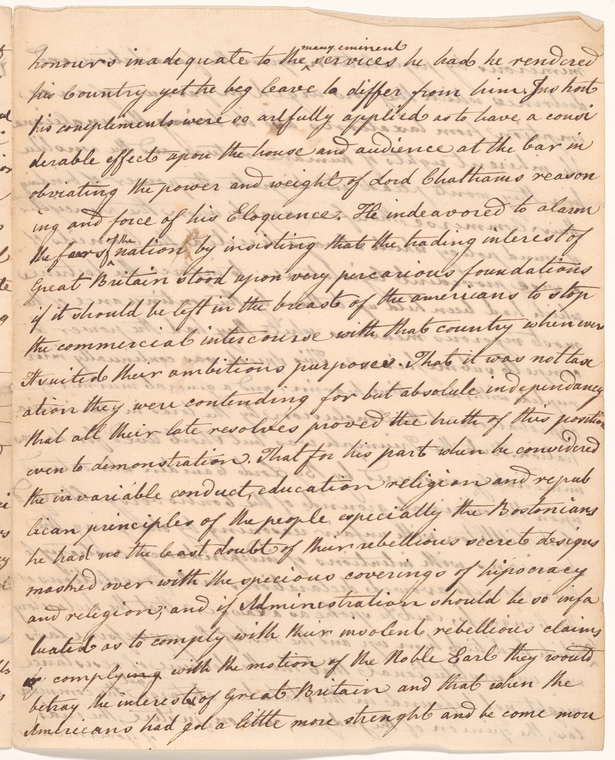 honours inadequate to the many eminent services he had he rendered
his Country yet he beg leave to differ from him. In short
his compliments were so artfully applied as to have a consi
derable effect upon the house and audience at the bar in
obviating the power and weight of Lord Chathams reason
ing and force of his Eloquence. He indeavored to alarm
the fear of the nation by insisting that the trading interest of
Great Britain stood upon very percarious foundations
if it should be left in the breast of the americans to stop
the commercial intercourse with that country when ever
it suited their ambitious purposes. That it was not tax
ation they were contending for but absolute independancy
that all their late resolves proved the truth of this position
even to demonstration. That for his part when he considered
the invariable conduct, education religion and repub
lican principles of the people especially the Bostonians
he had no the least doubt of their rebellious secret designs
masked over with the specious coverings of hipocracy
and religion; and if Administration should be so infa
tuated as to comply with their insolent rebellious claims
complying with the motion of the Noble Earl they would
betray the interests of Great Britain and that when the
Americans had got a little more strenght and be come more